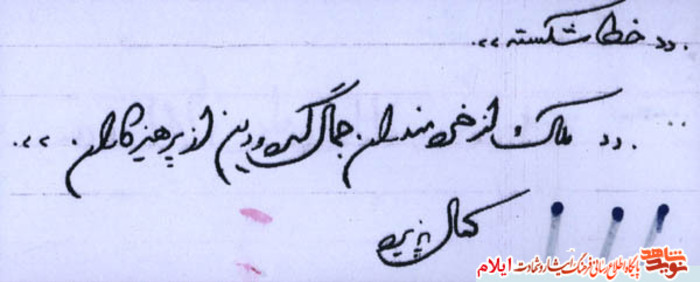 .،، خط شکسته ،،.
.،، ملک از خردمندان جمال گیرد و دین از پرهیزکاران. ،،.
کمال پذیرد
نوید شاهد
پایگاه اطلاع رسانی فرهنگ ایثار و شهادت ایلام